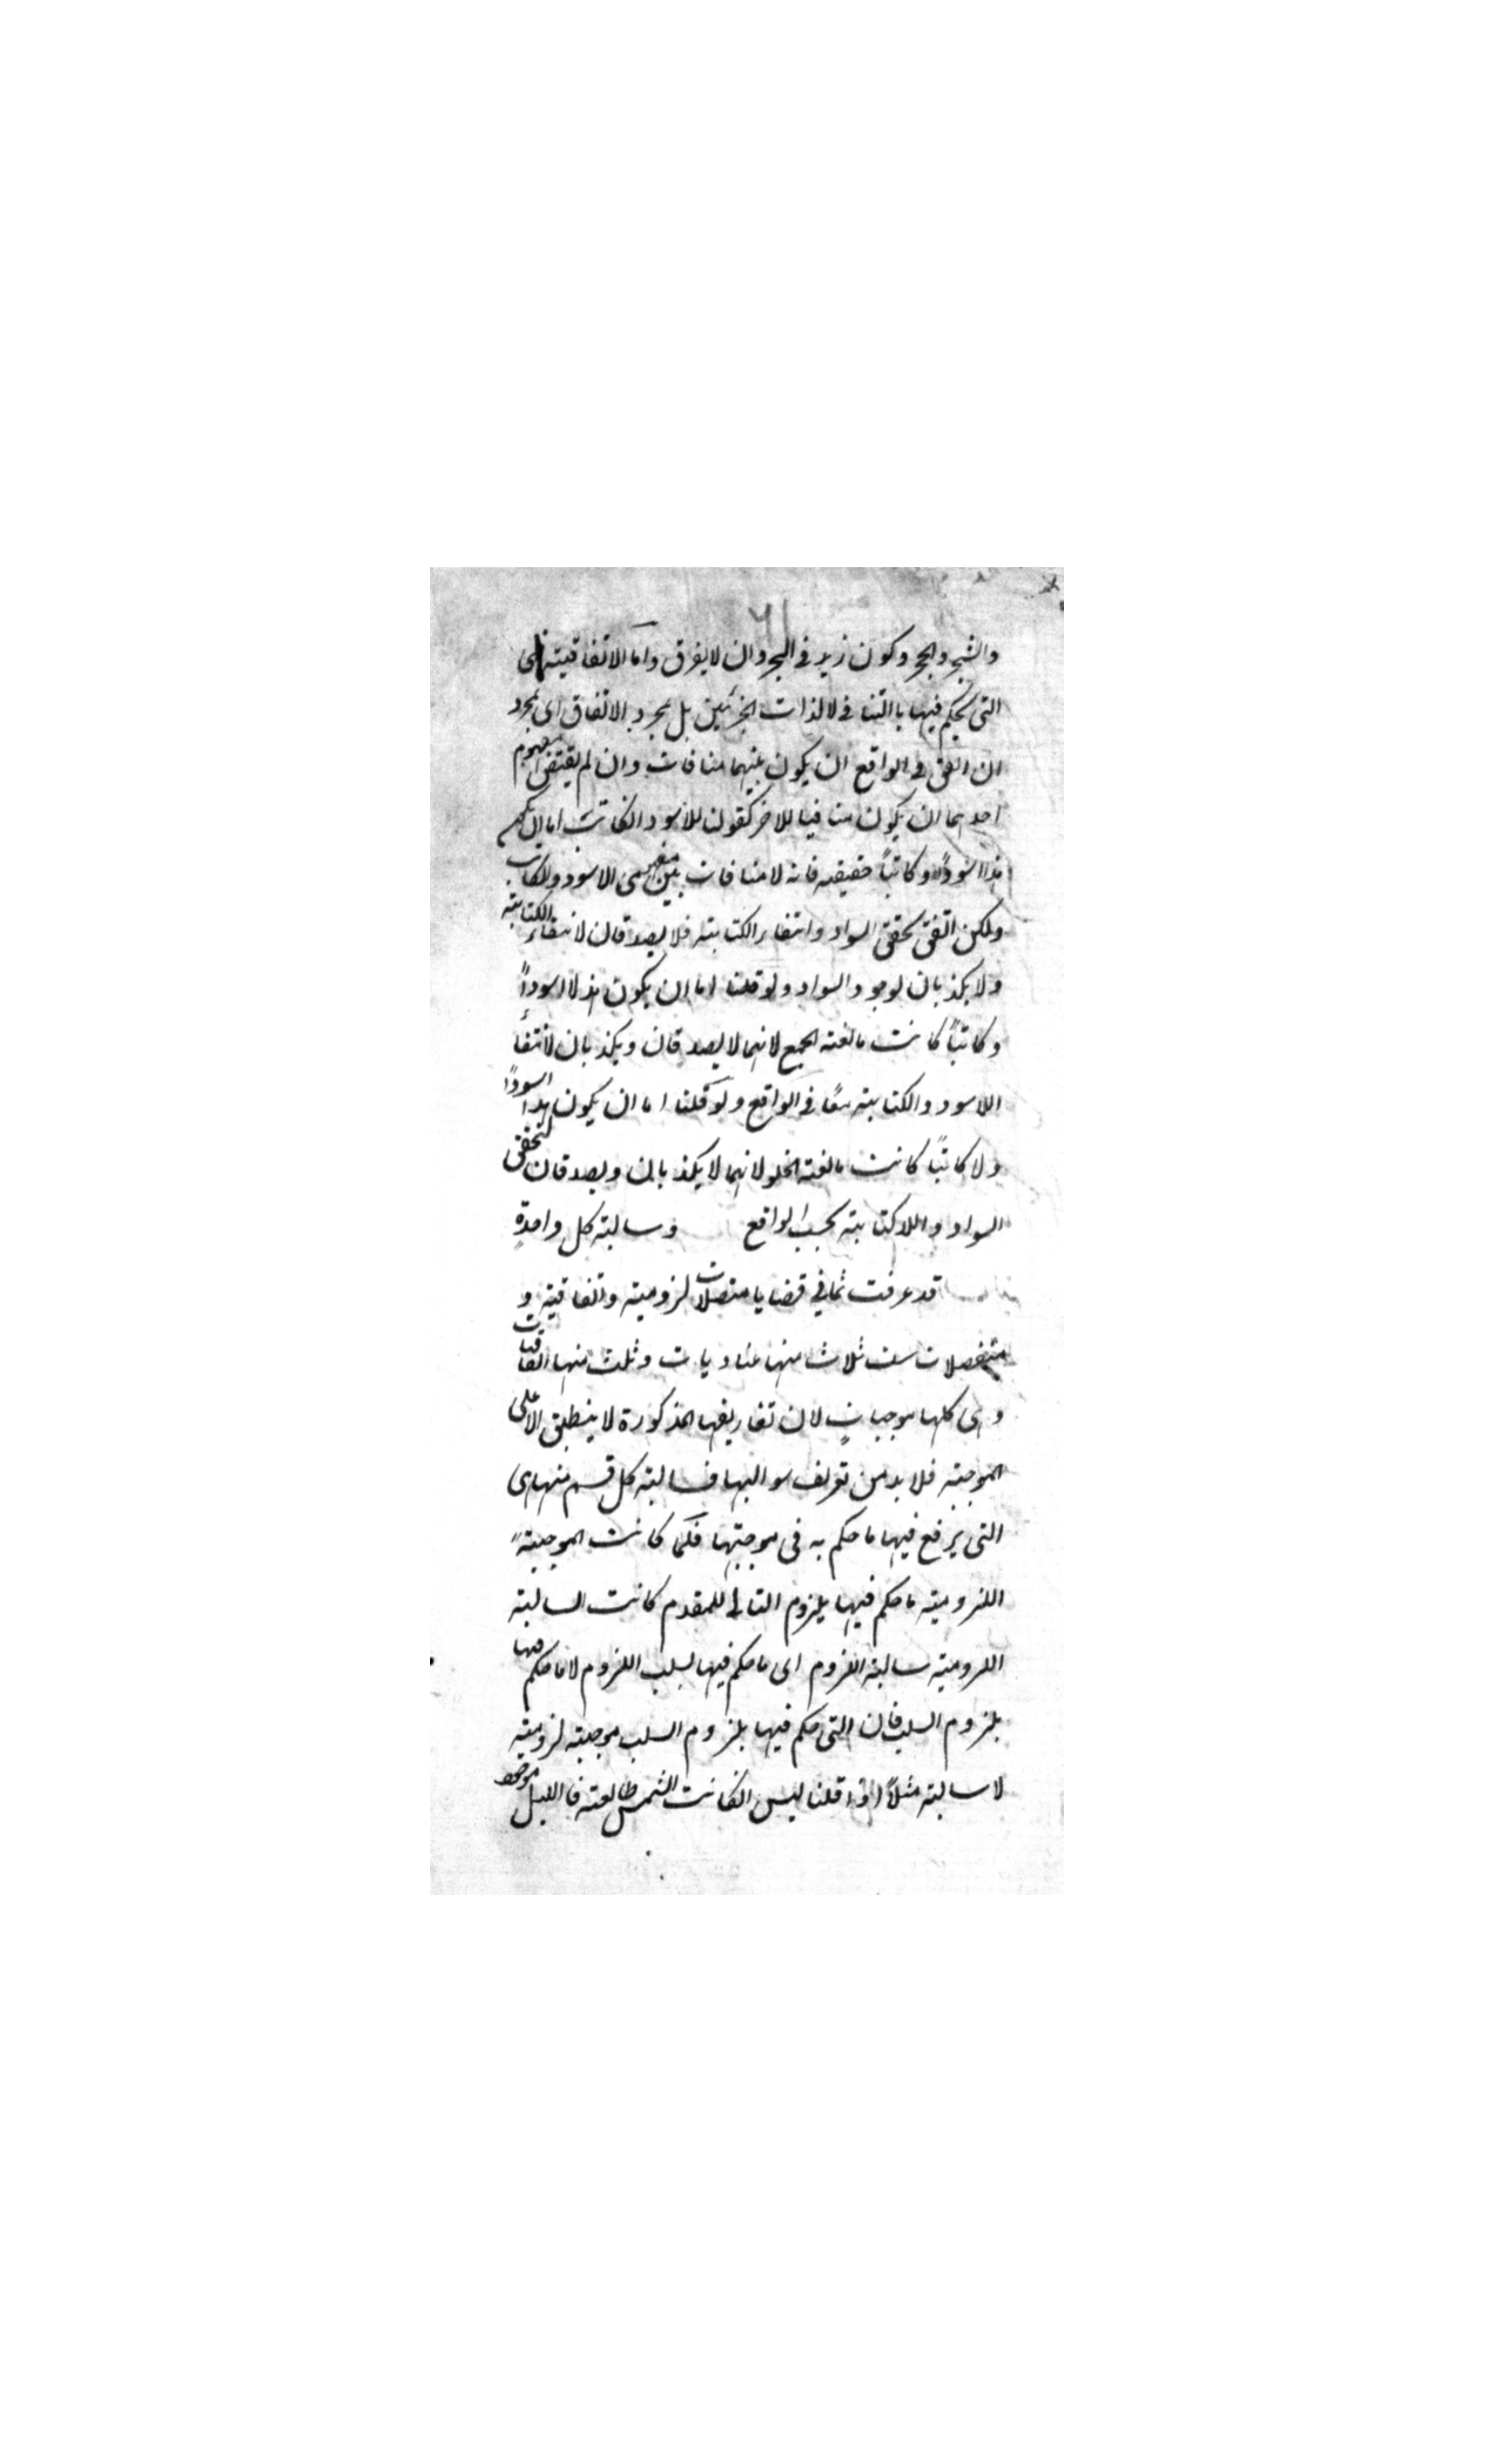 ٦١
والشجر والحجر وكون زيد فى البحر وان لا يغرق واما الاتفاقية فهى
التى يحكم فيها بالتنافى لا لذات الجزئين بل بمجرد الاتفاق اى بمجرد
ان اتفق فى الواقع ان يكون بينهما منافات وان لم يقتض مفهوم
احدهما ان يكون منافيا للاخر كقولن للاسود الكاتب اما ان يكون
هذا اسوداً وكاتباً حقيقه فانه لا منافات بين مفهومى الاسود والكاتب
ولكن اتفق تحقق السواد وانتفاء الكتابته فلا يصدقان لانتفاء الكتابته
ولا يكذبان لوجود السواد ولو قلنا اما ان يكون هذا لا اسوداً
وكاتباً كانت مانعته الجمع لانهما لا يصدقان ويكذبان لانتفاء
اللاسود والكتابته معًا فى الواقع ولو قلنا اما ان يكون هذا اسودًا
ولا كاتبًا كانت مانعته الخلو لانهما لا يكذبان ويصدقان لتحقق
السواد واللاكتابته بحسب الواقع وسالبته كل واحدةٍ
قد عرفت ثمانى قضايا متصلات لزوميته واتفاقيته و
منفصلات ست ثلاث منها عناديات وثلث منها اتفاقيات
وهى كلها موجبات لان تعاريفها المذكورة لا ينطبق الا على
الموجبته فلا بد من تعريف سوالبها فسالبته كل قسم منها هى
التى يرفع فيها ما حكم به فى موجبتها فكما كانت الموجبته
اللزوميته ما حكم فيها بلزوم التالى للمقدم كانت السالبته
اللزوميته سالبته اللزوم اى ما حكم فيها بسلب اللزوم لا ما حكم فيها
بلزوم السلب فان التى حكم فيها بلزوم السلب موجبته لزوميته
لا سالبته مثلاً اذا قلنا ليس ان كانت الشمس طالعته فالليل موجود